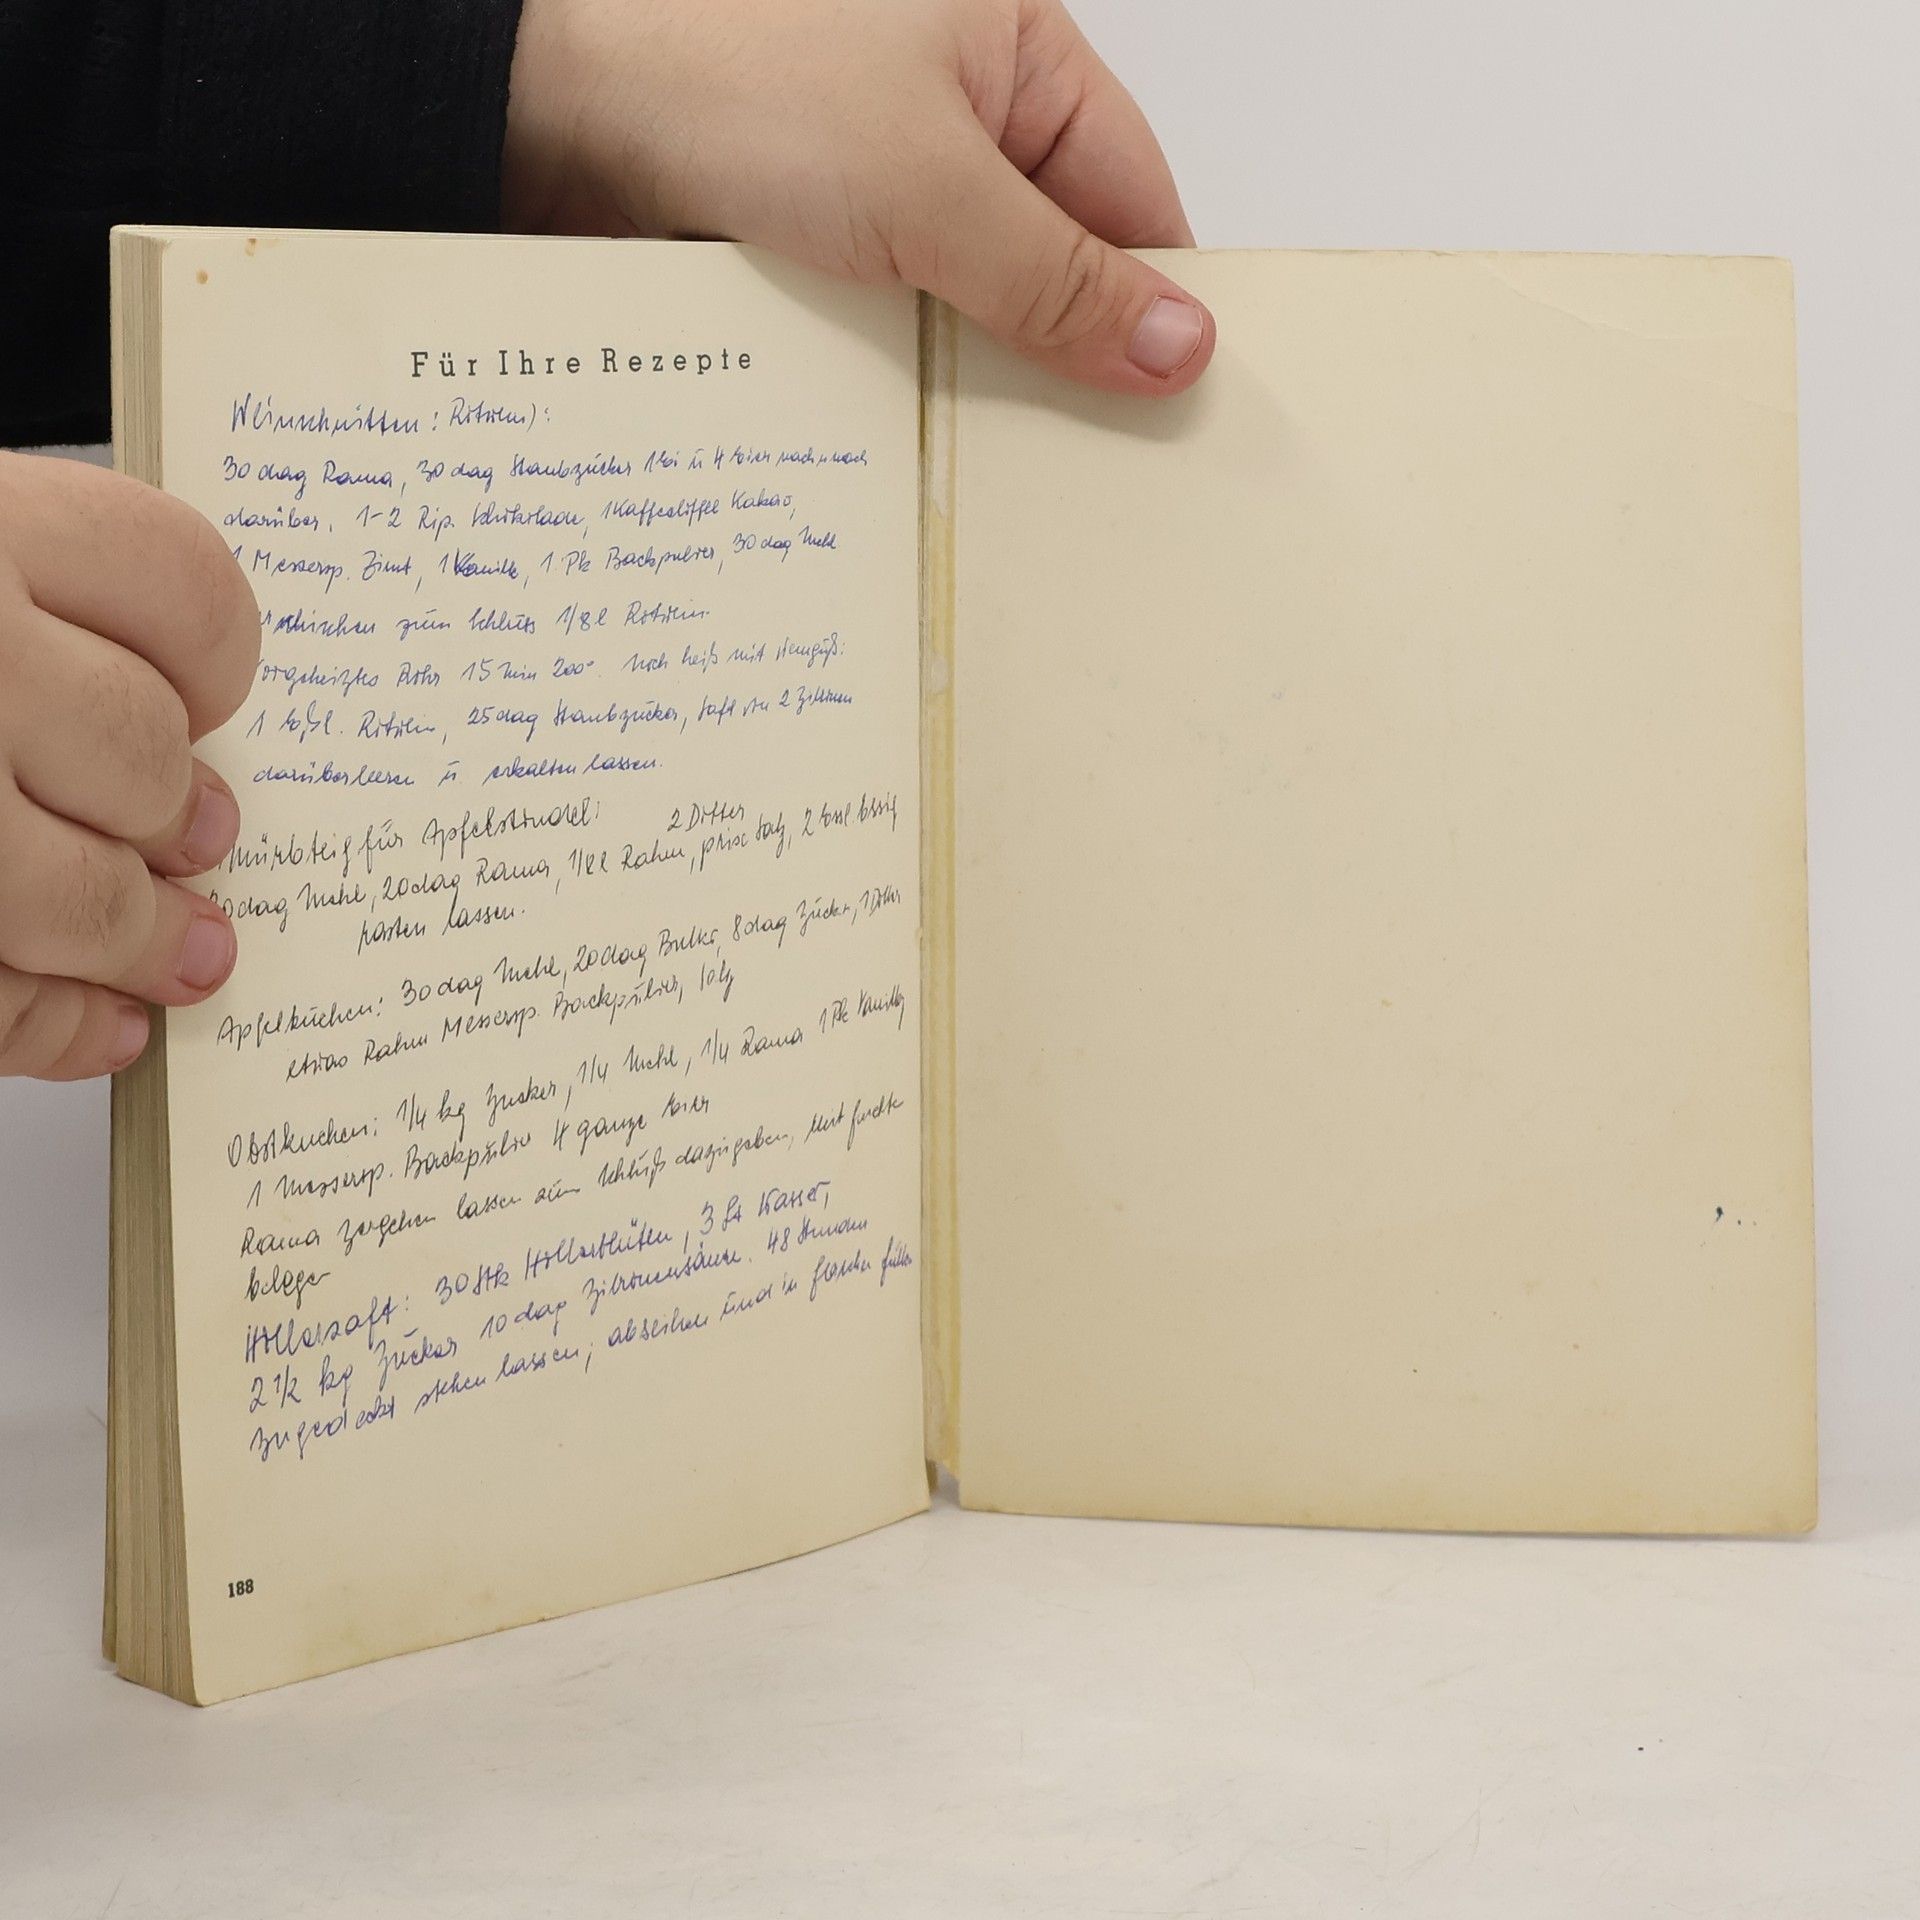 Für Ihre Rezepte
Weinschnitten: Rotwein):
30 dag Rama, 30 dag Staubzucker 1 Ei u 4 Eier nach u nach
darüber, 1-2 Rip. Schokolade, 1 Kaffeelöffel Kakao,
1 Messersp. Zimt, 1 Vanille, 1 Pk Backpulver, 30 dag Mehl
zum Schluss 1/8 l Rotwein.
orgeheiztes Rohr 15 min 200° noch heiß mit
1 Eßl. Rotwein, 25 dag Staubzucker, Saft von 2 Zitronen
darüberleeren u. erkalten lassen.
Mürbteig für Apfelstrudel:
2 Dotter
0 dag Mehl, 20 dag Rama, 1/8 l Rahm, prise Salz, 2 Essl. Essig
rasten lassen.
Apfelkuchen: 30 dag Mehl, 20 dag Butter, 8 dag Zucker, 1 Dotter
etwas Rahm Messersp. Backpulver, Salz
Obstkuchen: 1/4 kg Zucker, 1/4 Mehl, 1/4 Rama 1 Pk Vanillz
1 Messersp. Backpulver 4 ganze Eier
Rama zergehen lassen zum Schluß dazugeben, Mit früchte
belegen
Hollersaft: 30 Stk Hollerblüten, 3 Lt Wasser,
2 1/2 kg Zucker 10 dag Zitronensäure. 48 Stunden
Zugedeckt stehen lassen; abseihen und in flaschen füllen
188